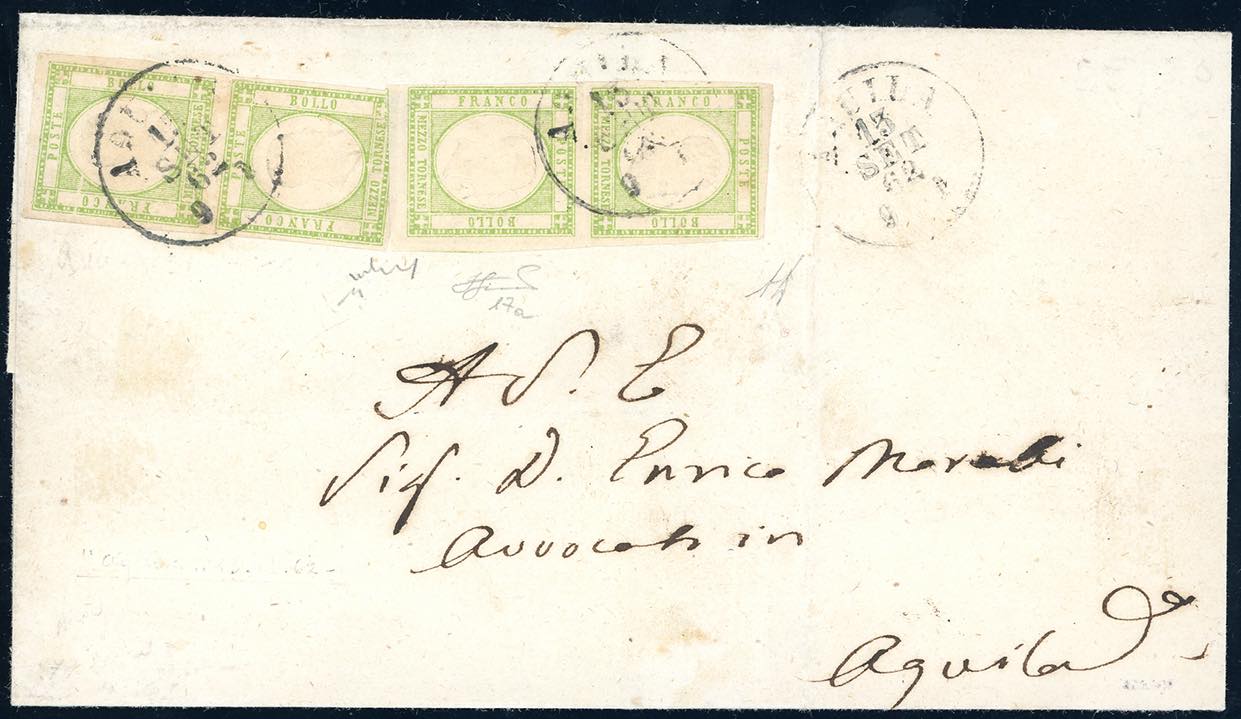 BOLLO
POSTE
FRANCO
BOLLO
MEZZO TORNESE
FRANCO
FRANCO
MEZZO TORNESE
POSTE
BOLLO
FRANCO
MEZZO TORNESE
POSTE
BOLLO
AQUILA
13
SET
62
9
17a
A S. E
Sig. D. Enrico
Avvocato in
Aquila